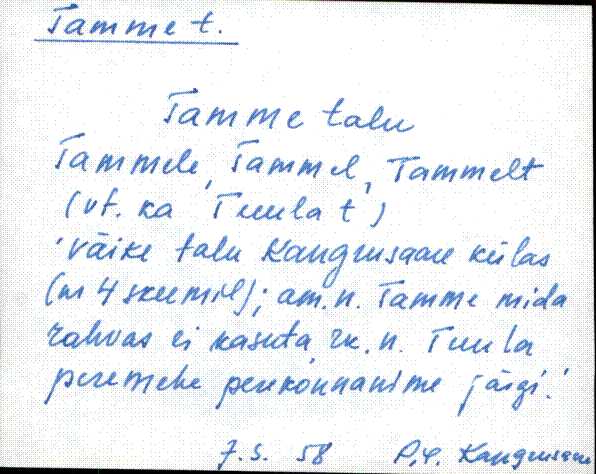 Tamme t.
Tamme talu
Tammele, Tammel, Tammelt
(vt. ka Tuula t)
'väike talu Kangrusaare külas
(nr 4 skeemil); am. n. Tamme mida
rahvas ei kasuta, rk. n. Tuula
peremehe perekonnanime järgi.'
7.5. 58 Kangrusaare